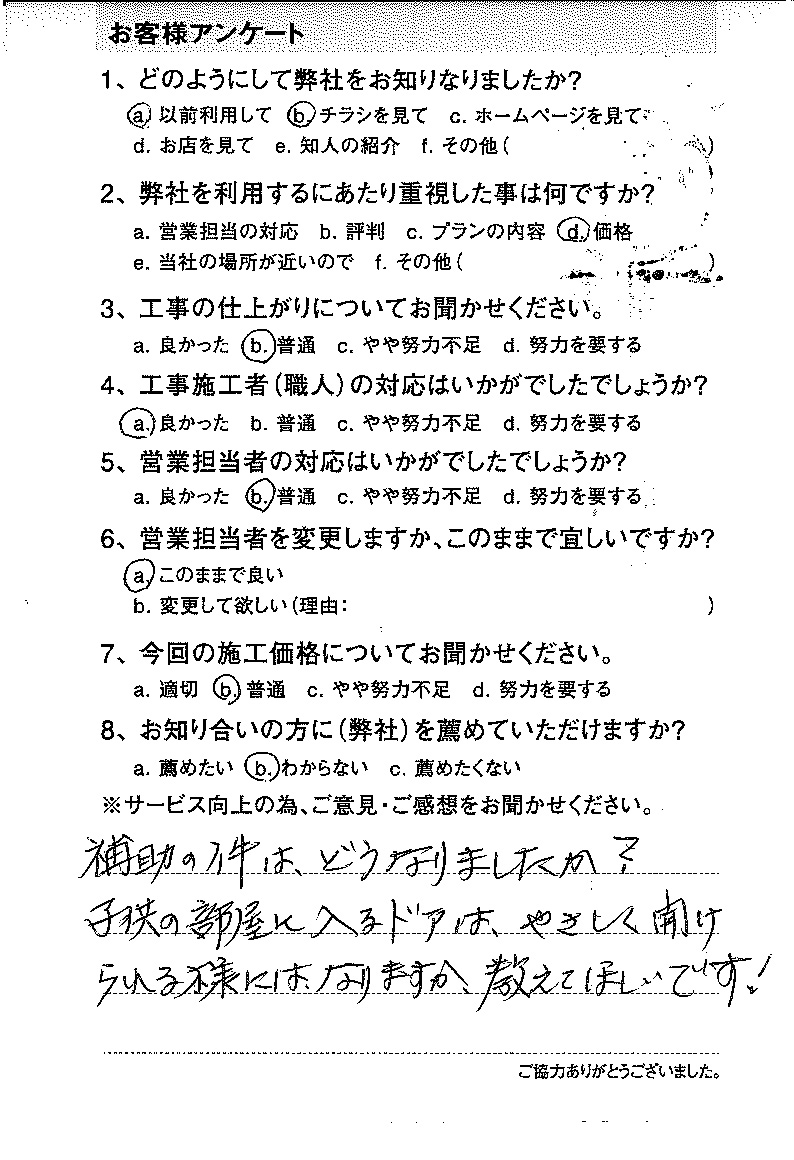 お客様アンケート
1、どのようにして弊社をお知りなりましたか?
a. 以前利用して b. チラシを見て c. ホームページを見て
d. お店を見て e. 知人の紹介 f. その他( )
2、弊社を利用するにあたり重視した事は何ですか?
a. 営業担当の対応 b. 評判 c. プランの内容 d. 価格
e. 当社の場所が近いので f. その他( )
3、工事の仕上がりについてお聞かせください。
a. 良かった b. 普通 c. やや努力不足 d. 努力を要する
4、工事施工者(職人)の対応はいかがでしたでしょうか?
a. 良かった b. 普通 c. やや努力不足 d. 努力を要する
5、営業担当者の対応はいかがでしたでしょうか?
a. 良かった b. 普通 c. やや努力不足 d. 努力を要する
6、営業担当者を変更しますか、このままで宜しいですか?
a. このままで良い
b. 変更して欲しい(理由: )
7、今回の施工価格についてお聞かせください。
a. 適切 b. 普通 c. やや努力不足 d. 努力を要する
8、お知り合いの方に(弊社)を薦めていただけますか?
a. 薦めたい b. わからない c. 薦めたくない
※サービス向上の為、ご意見・ご感想をお聞かせください。
補助の件は、どうなりましたか?
子供の部屋に入るドアは、やさしく開け
られる様にはなりますか、教えてほしいです!
ご協力ありがとうございました。